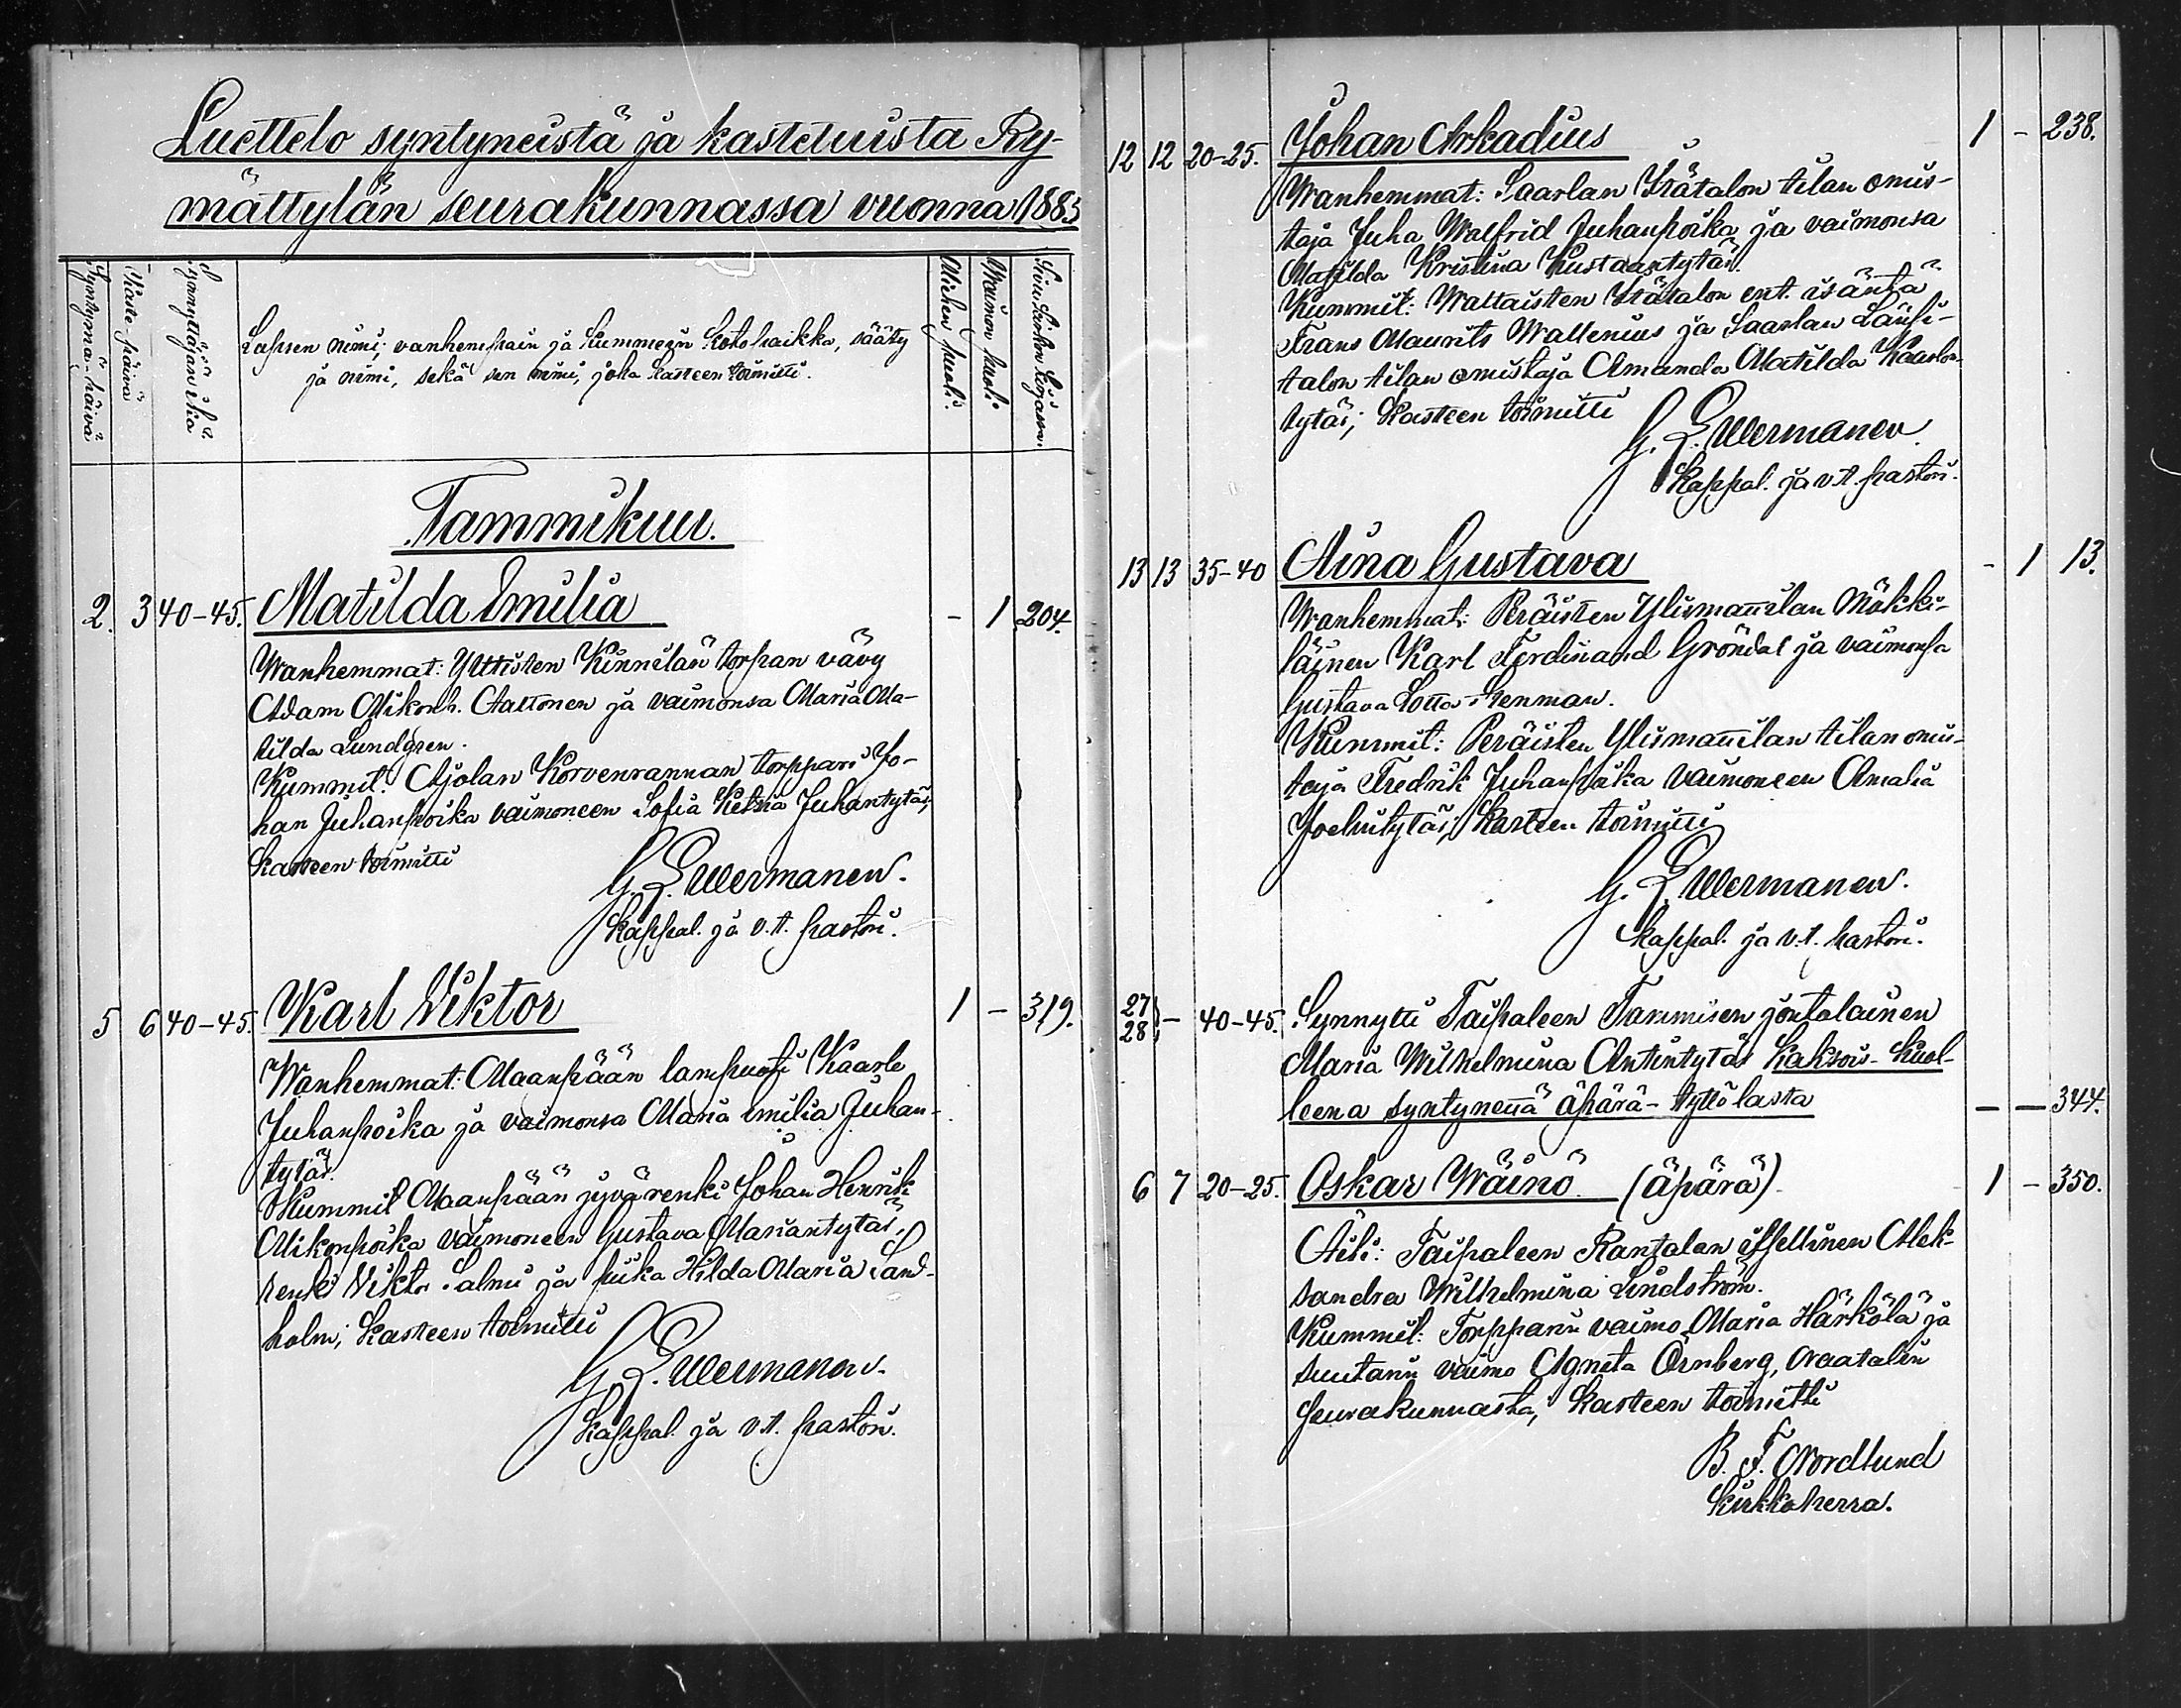 Luettelo syntyneistä ja kastetuista Ry-
mättylän seurakunnassa vuonna 1883
Syntymä-päivä
Kaste-päivä
Synnyttäjän ikä
Lapsen nimi; vanhempain ja kummein kotopaikka, sääty
ja nimi, sekä sen nimi, joka kasteen toimitti.
Miehen puoli.
Waimon puoli.
Tammikuu.
2. 3 40-45. Matilda Emilia - 1 204.
Wanhemmat: Yttisten Kinnilän torpan vävy
Adam Mikonp. Aaltonen ja vaimonsa Maria Ma-
tilda Lundgren.
Kummit: Ajolan Korvenrannan torppari Jo-
han Juhanpoika vaimoneen Sofia Juhantytär,
kasteen toimitti
G. L. Wermanen.
Kappal. ja v.t. pastori.
5 6 40-45. Karl Viktor 1 - 319.
Wanhemmat: Maanpään lampuoti Kaarle
Juhanpoika ja vaimonsa Maria Emilia Juhan-
tytär.
Kummit Maanpään jyvärenki Johan Henrik
Mikonpoika vaimoneen Gustava Mariantytär,
renki Viktor Salmi ja piika Hilda Maria Sand-
holm; Kasteen toimitti
G. L. Wermanen.
Kappal. ja v.t. pastori.
12 12 20-25. Johan Arkadius 1 - 238.
Wanhemmat: Saarlan Itätalon tilan omis-
taja Juha Walfrid Juhanpoika ja vaimonsa
Matilda Kristina Kustaantytär.
Kummit: Wattaisten Itätalon ent. isäntä
Frans Maurits Wallenius ja Saarlan Länsi-
talon tilan omistaja Amanda Matilda Kaarlon-
tytär; Kasteen toimitti
G. L. Wermanen.
Kappal. ja v.t. pastori.
13 13 35-40 Aina Gustava - 1 13.
Wanhemmat: Peräisten Ylismattilan Mökki-
läinen Karl Ferdinand Gröndal ja vaimonsa
Gustava Lotta Stenman.
Kummit: Peräisten Ylismattilan tilan omis-
taja Fredrik Juhanpoika vaimoneen Amalia
Joelintytär; Kasteen toimitti
G. L. Wermanen.
Kappal. ja v.t. pastori.
27 28 - 40-45. Synnytti Taipaleen Tammisen
Maria Wilhelmina Antintytär kaksois-kuol-
leena syntynettä äpärä-tyttölasta - - 344.
6 7 20-25. Oskar Wäinö (äpärä) 1 - 350.
Äiti: Taipaleen Rantalan itsellinen Alek-
sandra Wilhelmina Lindström.
Kummit: Torpparin vaimo Maria Härkölä ja
suutarin vaimo Agneta Örnberg, Naatalin
seurakunnasta, Kasteen toimitti
B. F. Nordlund
Kirkkoherra.